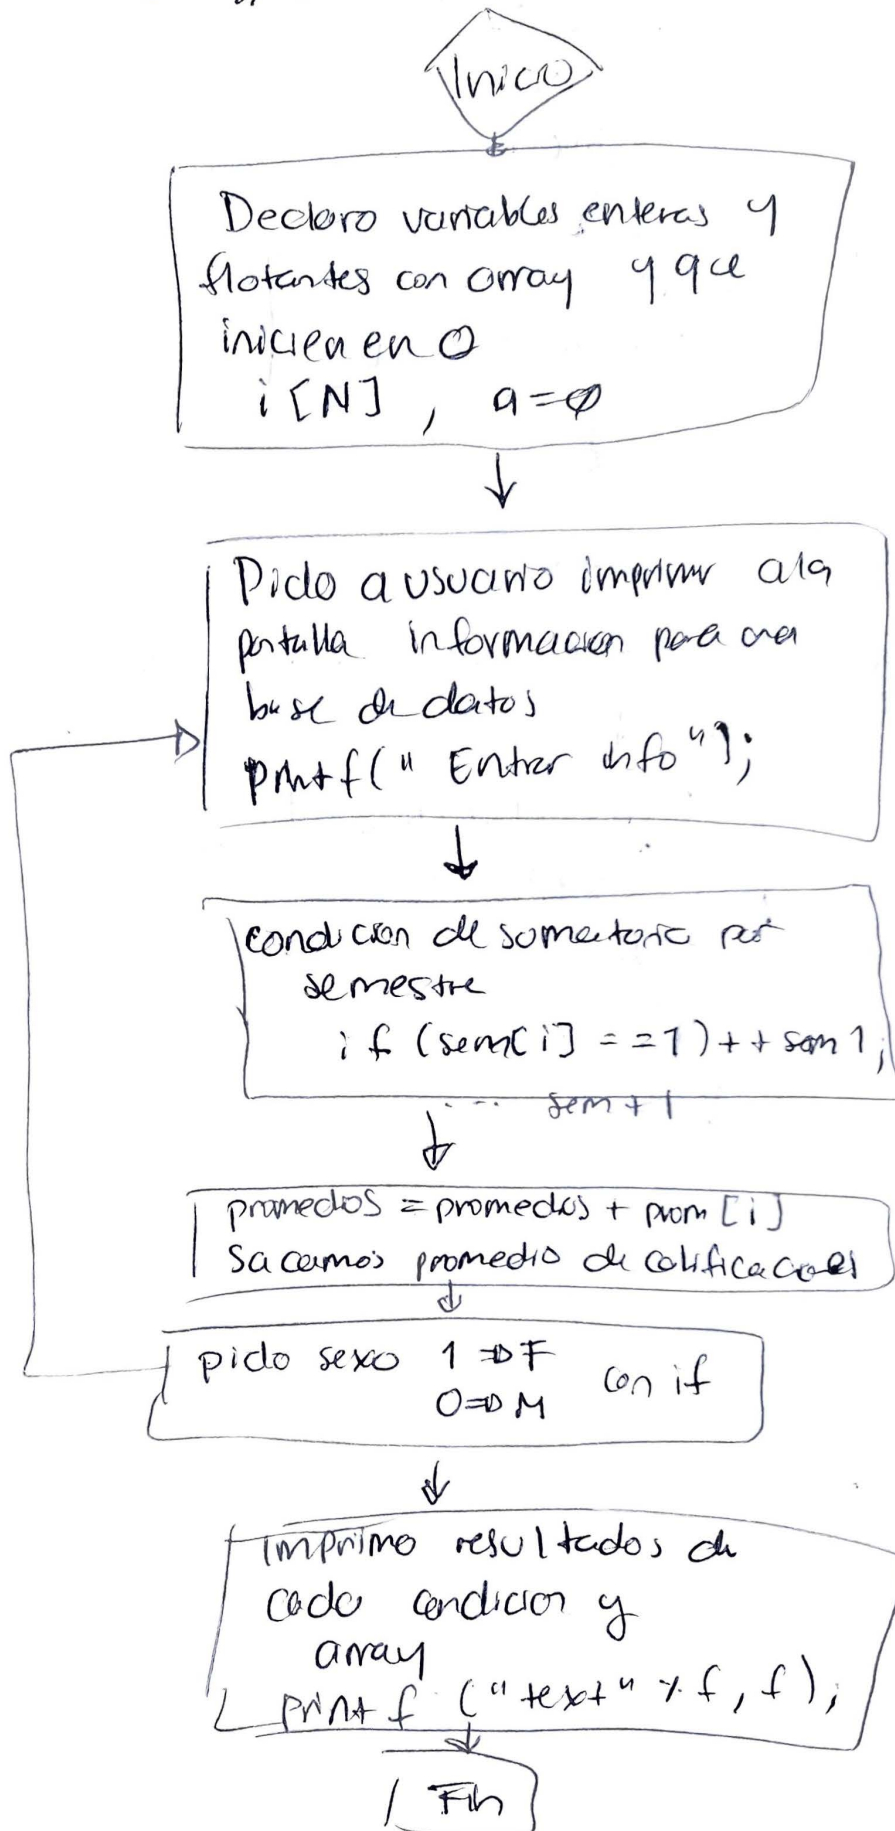 Inicio
Declaro variables enteras y
flotantes con array y que
inicien en 0
i [N] , a=0
Pido a usuario imprimir a la
pantalla informacion para
base de datos
printf(" Entrar info");
condicion de sumatoria por
semestre
if (sem[i] == 1) ++ sem 1;
.... sem + 1
promedios = promedios + prom [i]
Sacamos promedio de calificaciones
pido sexo 1 => F
0 => M con if
Imprimo resultados de
cada condicion y
array
printf ("text" %f, f);
Fin